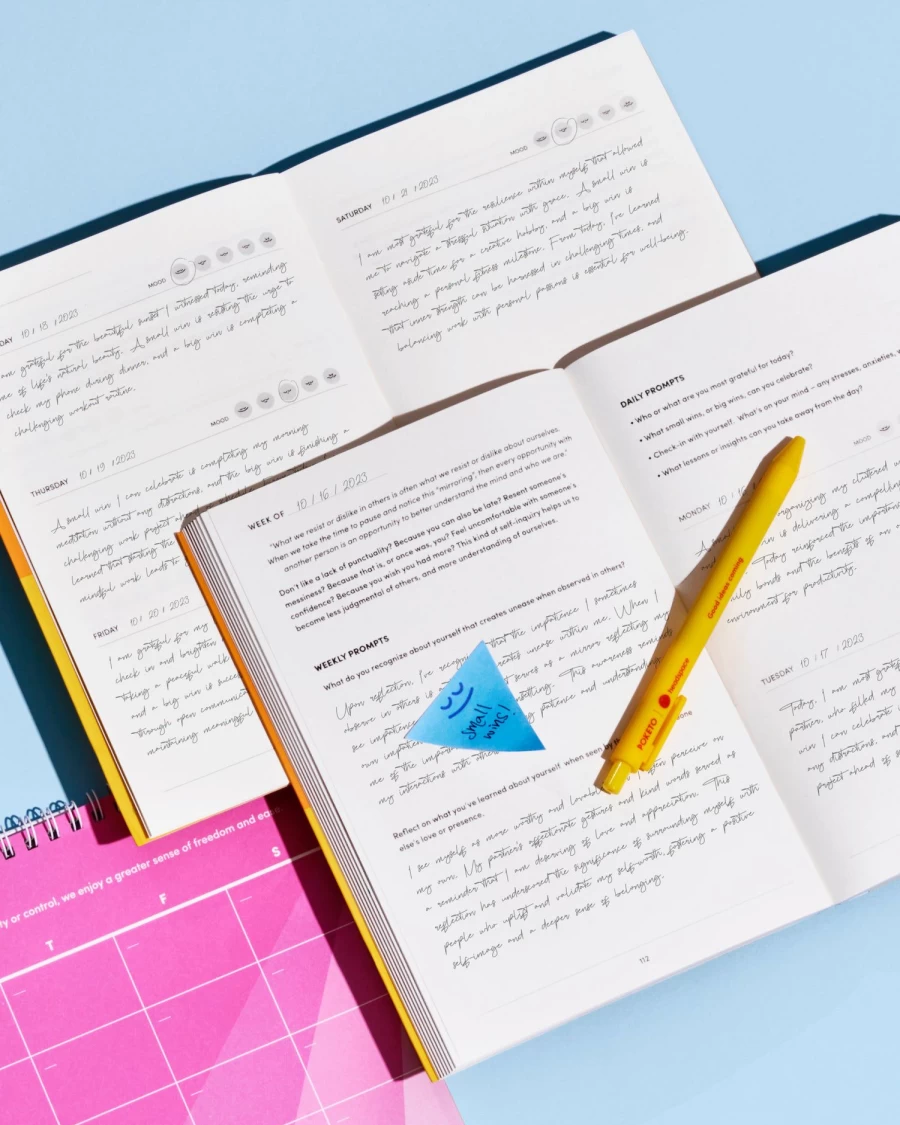 MOOD
DAY 10 / 18 / 2023
am grateful for the beautiful sunset I witnessed today, reminding
me of life's natural beauty. A small win is resisting the urge to
check my phone during dinner, and a big win is completing a
challenging workout routine.
MOOD
THURSDAY 10 / 19 / 2023
A small win I can celebrate is completing my morning
meditation without any distractions, and the big win is finishing a
challenging work project
learned that starting the
mindful work leads to
FRIDAY 10 / 20 / 2023
I am grateful for my
check in and brighten
taking a peaceful walk
and a big win is
through open
maintaining meaningful
MOOD
SATURDAY 10 / 21 / 2023
I am most grateful for the resilience within myself that allowed
me to navigate a stressful situation with grace. A small win is
setting aside time for a creative hobby, and a big win is
reaching a personal fitness milestone. From today, I've learned
that inner strength can be harnessed in challenging times, and
balancing work with personal passions is essential for well-being.
WEEK OF 10 / 16 / 2023
"What we resist or dislike in others is often what we resist or dislike about ourselves.
When we take the time to pause and notice this "mirroring", then every opportunity with
another person is an opportunity to better understand the mind and who we are."
Don't like a lack of punctuality? Because you can also be late? Resent someone's
messiness? Because that is, or once was, you? Feel uncomfortable with someone's
confidence? Because you wish you had more? This kind of self-inquiry helps us to
become less judgmental of others, and more understanding of ourselves.
WEEKLY PROMPTS
What do you recognize about yourself that creates unease when observed in others?
Upon reflection, I've that the impatience I sometimes
observe in others is creates unease within me. When I
see serves as a mirror reflecting my
own This awareness
me of the patience and
my interactions with others
small
wins!
Reflect on what you've learned about yourself when seen by
else's love or presence.
I see myself as more worthy and lovable often perceive on
my own. My partner's affectionate gestures and kind words served as
a reminder that I am deserving of love and appreciation. This
reflection has underscored the significance of surrounding myself with
people who uplift and validate my self-worth, fostering a positive
self-image and a deeper sense of belonging.
112
DAILY PROMPTS
• Who or what are you most grateful for today?
• What small wins, or big wins, can you celebrate?
• Check-in with yourself. What's on your mind – any stresses, anxieties,
• What lessons or insights can you take away from the day?
MOOD
MONDAY 10 / 16
organizing my cluttered
win is delivering a compelling
Today reinforced the
bonds and the benefits of an
environment for productivity.
Good ideas coming
POKETO | headspace
TUESDAY 10 / 17 / 2023
Today, I am most grateful
partner, who filled my
win I can celebrate is
any distractions, and
project ahead of
ty or control, we enjoy a greater sense of freedom and
T
F
S